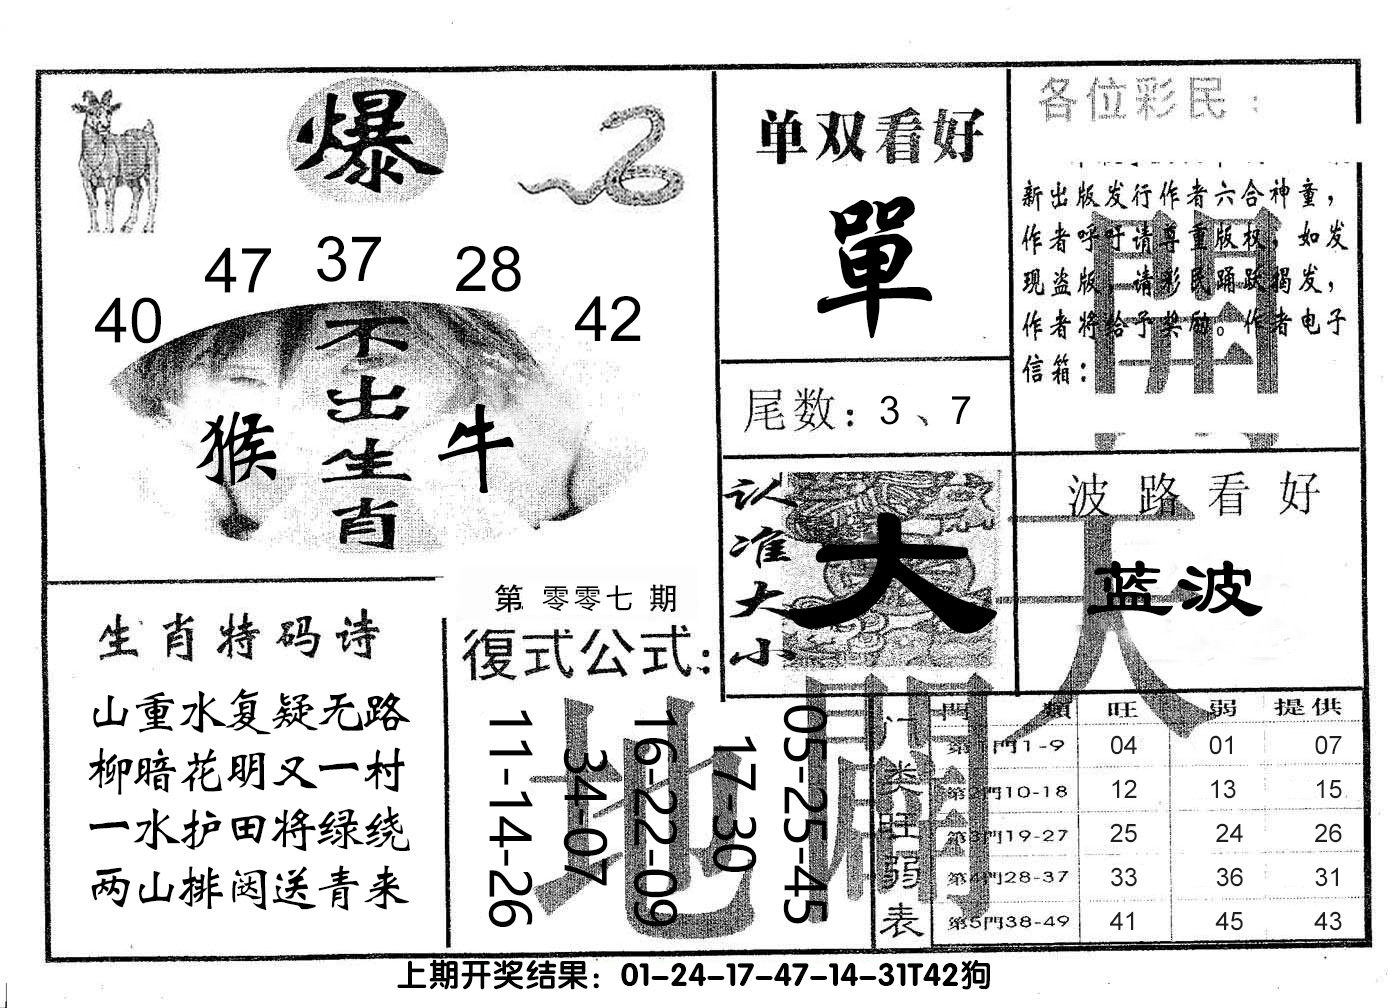 爆
47 37 28
40 42
不出生肖
猴 牛
单双看好
單
尾数：3、7
认准大小
大
各位彩民：
新出版发行作者六合神童，
作者呼吁请尊重版权，如发
现盗版，请彩民踊跃揭发，
作者将给予奖励。作者电子
信箱：
開
波路看好
蓝波
天
生肖特码诗
山重水复疑无路
柳暗花明又一村
一水护田将绿绕
两山排闼送青来
第零零七期
復式公式：
11-14-26
34-07
16-22-09
17-30
05-25-45
地
開
门类旺弱表
門類 旺 弱 提供
第1門1-9 04 01 07
第2門10-18 12 13 15
第3門19-27 25 24 26
第4門28-37 33 36 31
第5門38-49 41 45 43
上期开奖结果：01-24-17-47-14-31T42狗